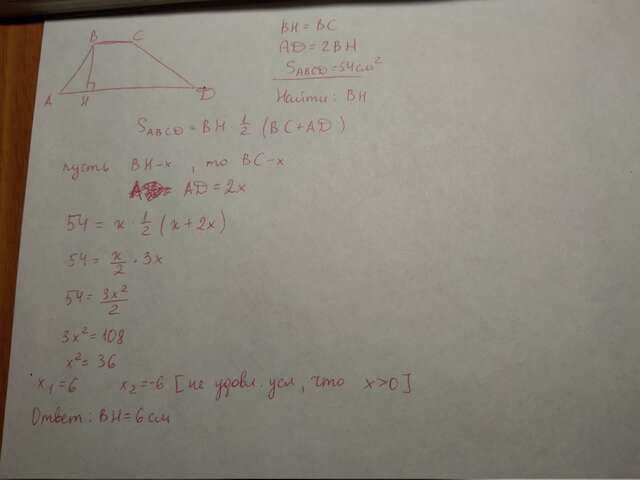 B C
A H D
BH = BC
AD = 2BH
S ABCD = 54 см²
Найти: BH
S ABCD = BH · 1/2 (BC + AD)
пусть BH - x, то BC - x
AD = 2x
54 = x · 1/2 (x + 2x)
54 = x/2 · 3x
54 = 3x²/2
3x² = 108
x² = 36
x₁ = 6 x₂ = -6 [не удовл. усл, что x > 0]
Ответ: BH = 6 см